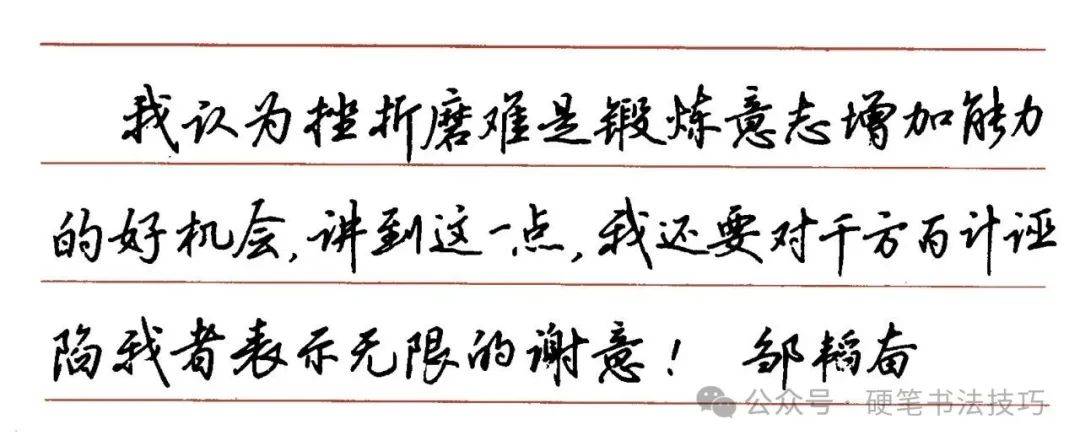 我认为挫折磨难是锻炼意志增加能力
的好机会,讲到这一点,我还要对千方百计诬
陷我者表示无限的谢意! 邹韬奋
公众号·硬笔书法技巧